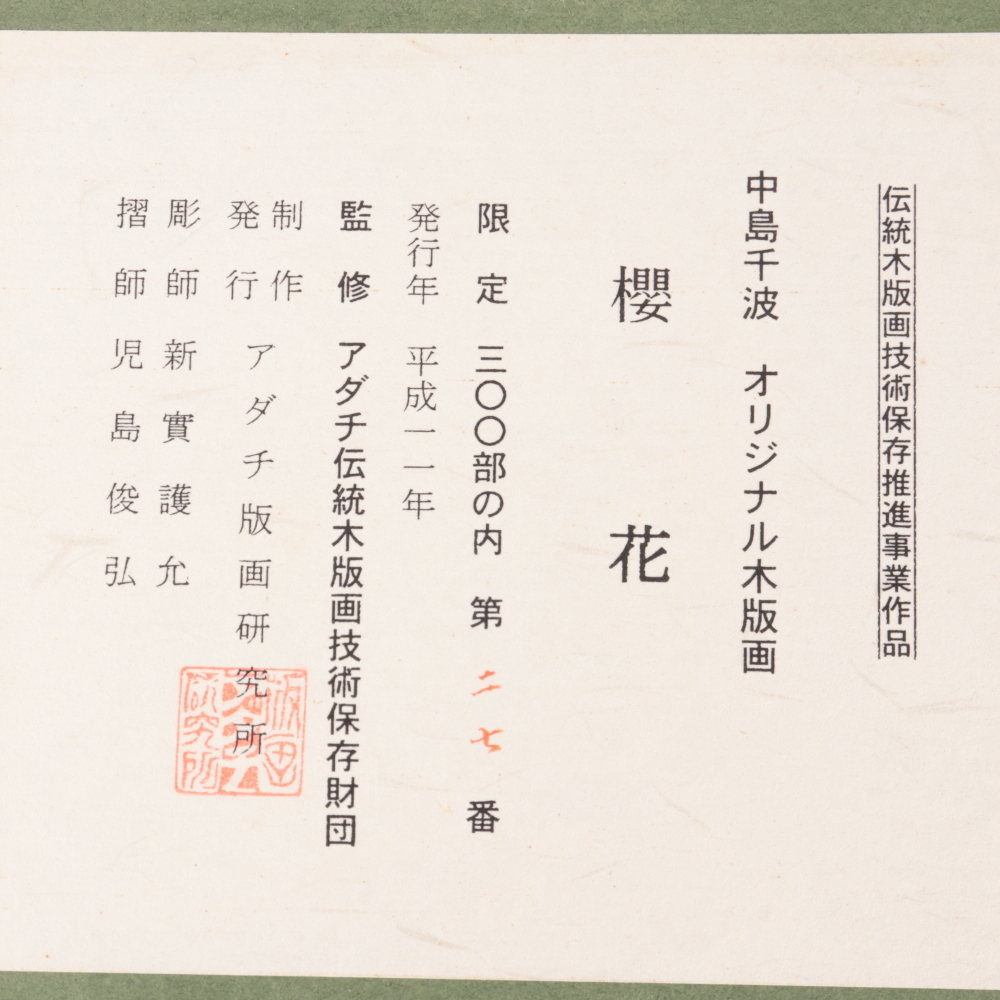 伝統木版画技術保存推進事業作品
中島千波　オリジナル木版画
櫻花
限定　三〇〇部の内　第二七番
発行年　平成一一年
監修　アダチ伝統木版画技術保存財団
制作
発行　アダチ版画研究所
彫師　新實護允
摺師　児島俊弘
版画
研究所